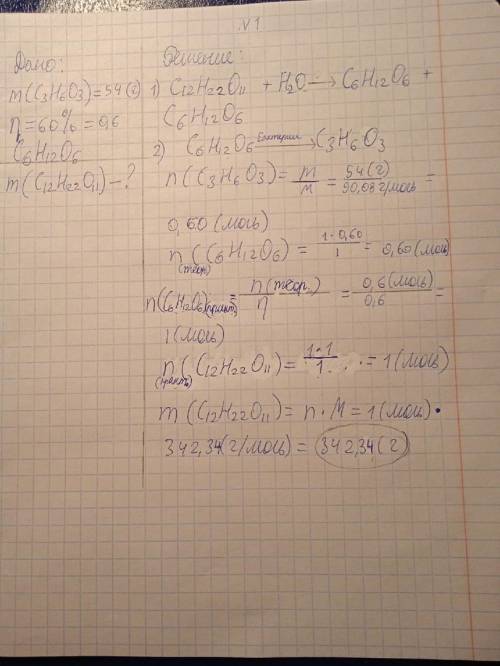 №1
Дано:
m(C3H6O3)=54(г)
η=60%=0,6
C6H12O6
m(C12H22O11)-?
Решение:
1) C12H22O11 + H2O → C6H12O6 +
C6H12O6
2) C6H12O6 бактерии→ C3H6O3
n(C3H6O3)= m/M = 54(г)/90,08 г/моль =
0,60(моль)
n(теор)(C6H12O6) = 1·0,60/1 = 0,60(моль)
n(C6H12O6)(практ) = n(теор.)/η = 0,6(моль)/0,6 =
1(моль)
n(практ)(C12H22O11)= 1·1/1 = 1(моль)
m(C12H22O11)= n·M = 1(моль)·
342,34(г/моль) = 342,34(г)